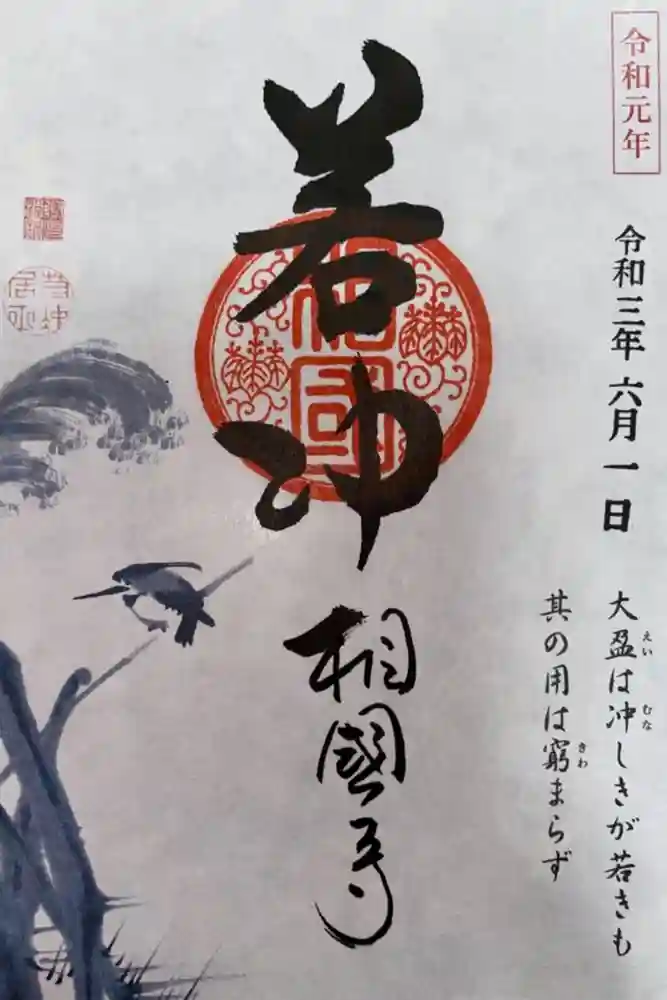 令和元年
令和三年 六月一日
大盈は冲しきが若きも
えい
むな
其の用は窮まらず
きわ
若冲
相國
相國寺
若冲居士